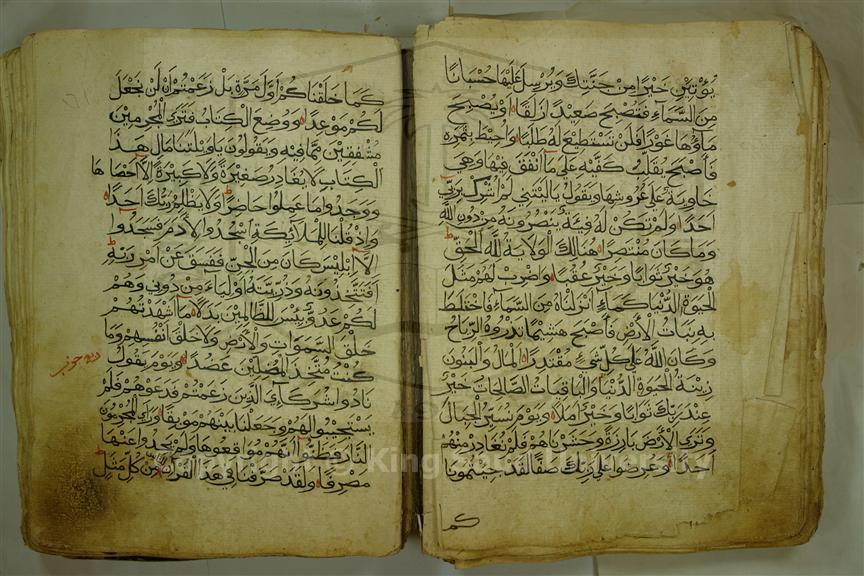 يُؤْتِيَنِ خَيْرًا مِنْ جَنَّتِكَ وَيُرْسِلَ عَلَيْهَا حُسْبَانًا
مِنَ السَّمَاءِ فَتُصْبِحَ صَعِيدًا زَلَقًا أَوْ يُصْبِحَ
مَاؤُهَا غَوْرًا فَلَنْ تَسْتَطِيعَ لَهُ طَلَبًا وَأُحِيطَ بِثَمَرِهِ
فَأَصْبَحَ يُقَلِّبُ كَفَّيْهِ عَلَى مَا أَنْفَقَ فِيهَا وَهِيَ
خَاوِيَةٌ عَلَى عُرُوشِهَا وَيَقُولُ يَا لَيْتَنِي لَمْ أُشْرِكْ بِرَبِّي
أَحَدًا وَلَمْ تَكُنْ لَهُ فِئَةٌ يَنْصُرُونَهُ مِنْ دُونِ اللَّهِ
وَمَا كَانَ مُنْتَصِرًا هُنَالِكَ الْوَلَايَةُ لِلَّهِ الْحَقِّ
هُوَ خَيْرٌ ثَوَابًا وَخَيْرٌ عُقْبًا وَاضْرِبْ لَهُمْ مَثَلَ
الْحَيَوةِ الدُّنْيَا كَمَاءٍ أَنْزَلْنَاهُ مِنَ السَّمَاءِ فَاخْتَلَطَ
بِهِ نَبَاتُ الْأَرْضِ فَأَصْبَحَ هَشِيمًا تَذْرُوهُ الرِّيَاحُ
وَكَانَ اللَّهُ عَلَى كُلِّ شَيْءٍ مُقْتَدِرًا الْمَالُ وَالْبَنُونَ
زِينَةُ الْحَيَوةِ الدُّنْيَا وَالْبَاقِيَاتُ الصَّالِحَاتُ خَيْرٌ
عِنْدَ رَبِّكَ ثَوَابًا وَخَيْرٌ أَمَلًا وَيَوْمَ نُسَيِّرُ الْجِبَالَ
وَتَرَى الْأَرْضَ بَارِزَةً وَحَشَرْنَاهُمْ فَلَمْ نُغَادِرْ مِنْهُمْ
أَحَدًا وَعُرِضُوا عَلَى رَبِّكَ صَفًّا لَقَدْ جِئْتُمُونَا
كما
كَمَا خَلَقْنَاكُمْ أَوَّلَ مَرَّةٍ بَلْ زَعَمْتُمْ أَنْ لَنْ نَجْعَلَ
لَكُمْ مَوْعِدًا وَوُضِعَ الْكِتَابُ فَتَرَى الْمُجْرِمِينَ
مُشْفِقِينَ مِمَّا فِيهِ وَيَقُولُونَ يَا وَيْلَتَنَا مَالِ هَذَا
الْكِتَابِ لَا يُغَادِرُ صَغِيرَةً وَلَا كَبِيرَةً إِلَّا أَحْصَاهَا
وَوَجَدُوا مَا عَمِلُوا حَاضِرًا وَلَا يَظْلِمُ رَبُّكَ أَحَدًا
وَإِذْ قُلْنَا لِلْمَلَائِكَةِ اسْجُدُوا لِآدَمَ فَسَجَدُوا
إِلَّا إِبْلِيسَ كَانَ مِنَ الْجِنِّ فَفَسَقَ عَنْ أَمْرِ رَبِّهِ
أَفَتَتَّخِذُونَهُ وَذُرِّيَّتَهُ أَوْلِيَاءَ مِنْ دُونِي وَهُمْ
لَكُمْ عَدُوٌّ بِئْسَ لِلظَّالِمِينَ بَدَلًا مَا أَشْهَدْتُهُمْ
خَلْقَ السَّمَوَاتِ وَالْأَرْضِ وَلَا خَلْقَ أَنْفُسِهِمْ وَمَا
كُنْتُ مُتَّخِذَ الْمُضِلِّينَ عَضُدًا وَيَوْمَ يَقُولُ
نَادُوا شُرَكَاءِيَ الَّذِينَ زَعَمْتُمْ فَدَعَوْهُمْ فَلَمْ
يَسْتَجِيبُوا لَهُمْ وَجَعَلْنَا بَيْنَهُمْ مَوْبِقًا وَرَأَى الْمُجْرِمُونَ
النَّارَ فَظَنُّوا أَنَّهُمْ مُوَاقِعُوهَا وَلَمْ يَجِدُوا عَنْهَا
مَصْرِفًا وَلَقَدْ صَرَّفْنَا فِي هَذَا الْقُرْآنِ مِنْ كُلِّ مَثَلٍ
Copyright © King Saud University